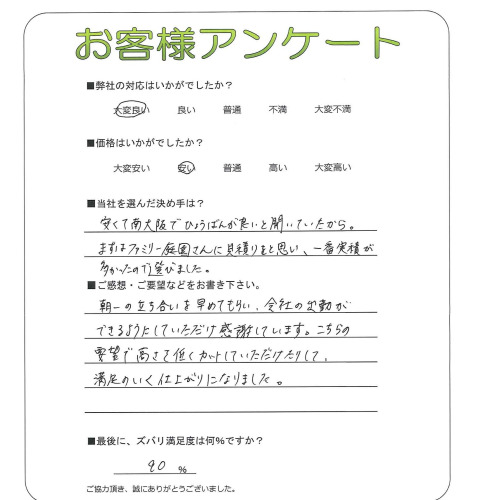 お客様アンケート
■弊社の対応はいかがでしたか？
大変良い 良い 普通 不満 大変不満
■価格はいかがでしたか？
大変安い 安い 普通 高い 大変高い
■当社を選んだ決め手は？
安くて南大阪でひょうばんが良いと聞いていたから。
まずはファミリー庭園さんに見積りをと思い、一番実積が
多かったので選びました。
■ご感想・ご要望などをお書き下さい。
朝一の立ち合いを早めてもらい、会社の出勤が
できるようにしていただけ感謝しています。こちらの
要望で高さを低くカットしていただけたりして、
満足のいく仕上がりになりました。
■最後に、ズバリ満足度は何%ですか？
90 %
ご協力頂き、誠にありがとうございました。